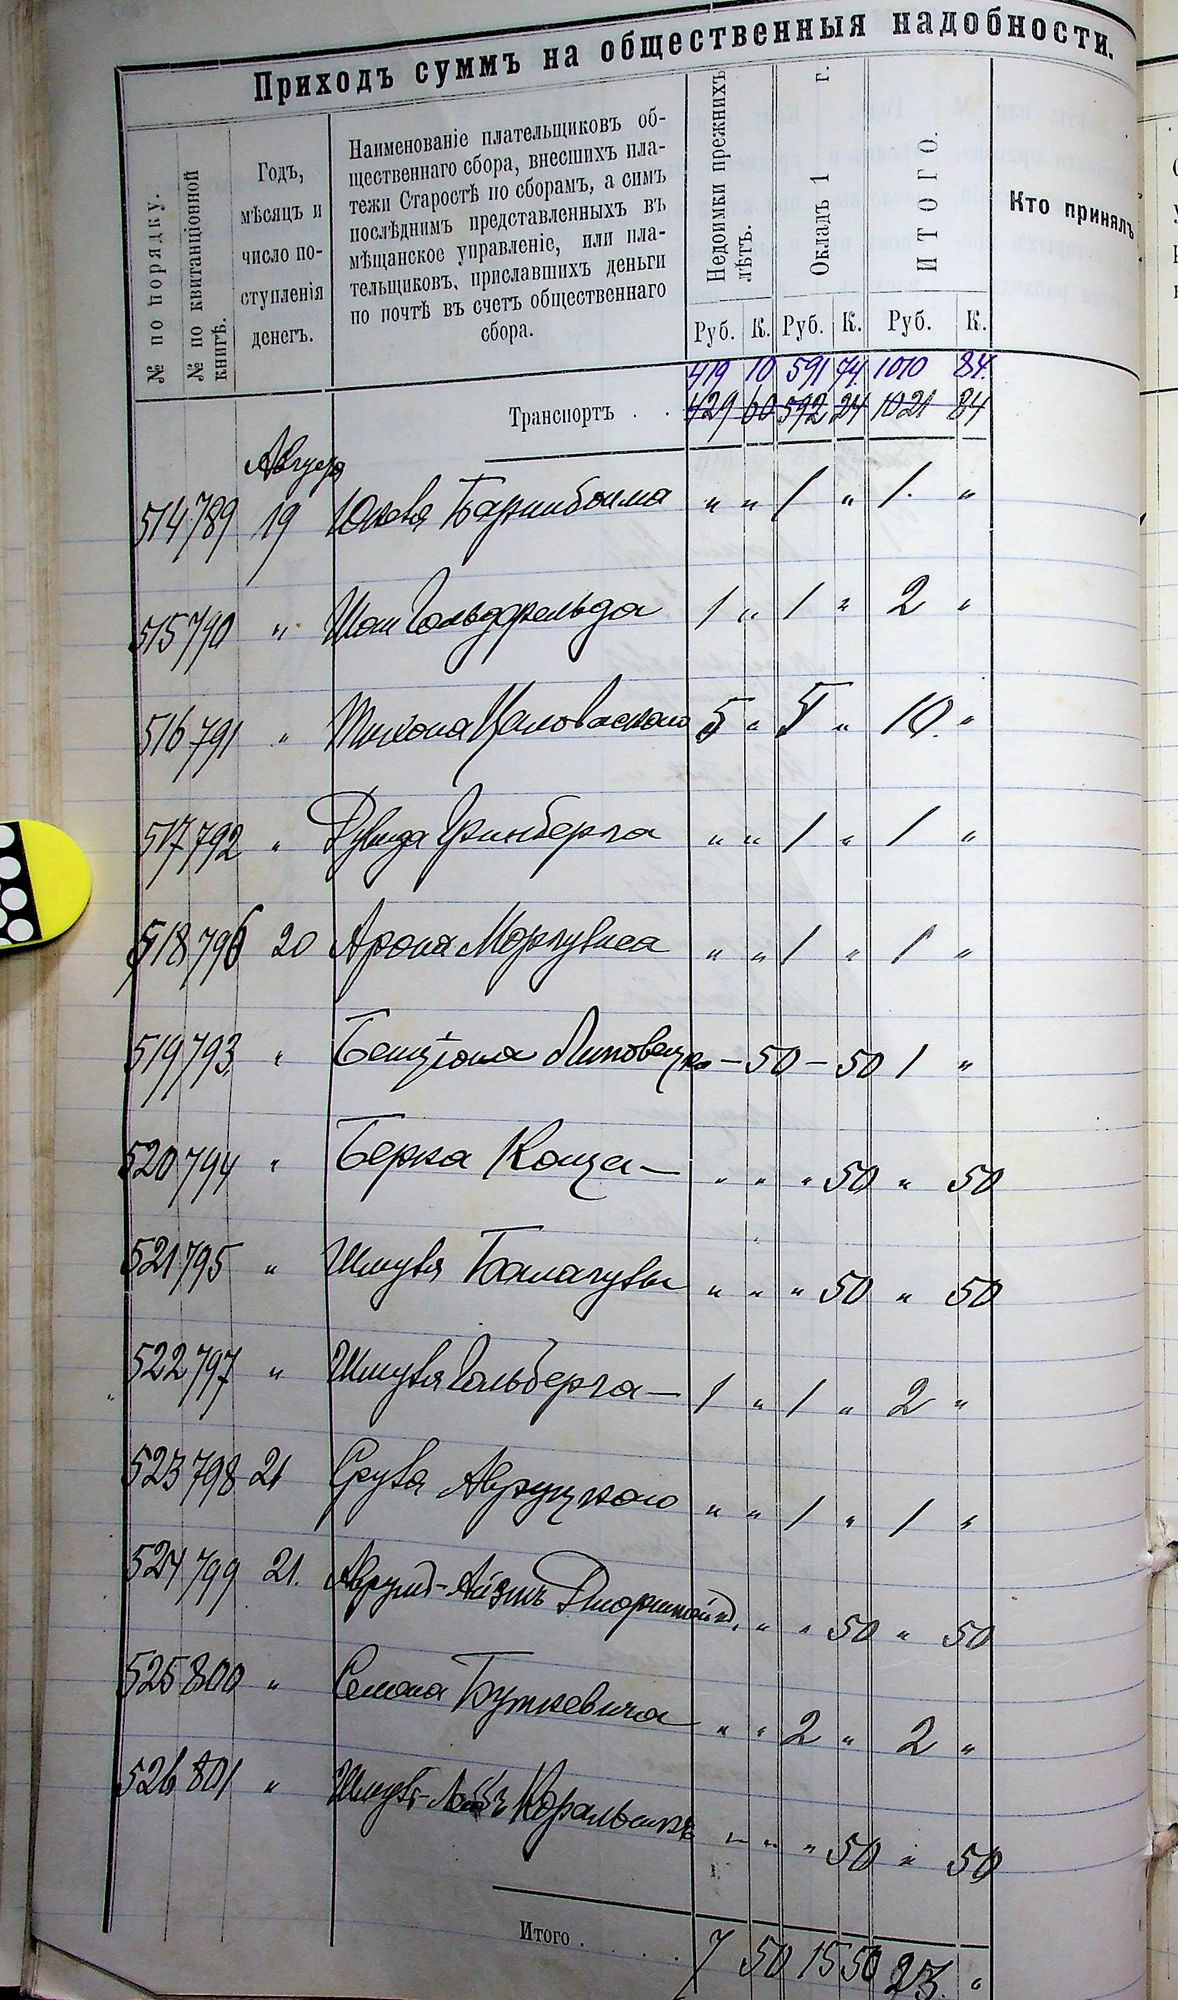 Приходъ суммъ на общественныя надобности.
№ по порядку.
№ по квитанціонной книгѣ.
Годъ,
мѣсяцъ и
число по-
ступленія
денегъ.
Наименованіе плательщиковъ об-
щественнаго сбора, внесшихъ пла-
тежи Старостѣ по сборамъ, а симъ
послѣднимъ представленныхъ въ
мѣщанское управленіе, или пла-
тельщиковъ, приславшихъ деньги
по почтѣ въ счетъ общественнаго
сбора.
Недоимки прежнихъ лѣтъ.
Окладъ 1 г.
ИТОГО.
Кто принялъ
Руб. К. Руб. К. Руб. К.
419 10 591 74 1010 84.
Транспортъ . . 429 60 592 24 1021 84
Августа
514 789 19 " " 1 " 1. "
515 790 " Шаи Гольдфельда 1 " 1 " 2 "
516 791 " 5 " 5 " 10. "
517 792 " Дувида Гринберга " " 1 " 1 "
518 796 20 Арона Моргулиса " " 1 " 1 "
519 793 " Бенціона Липовецка — 50 — 50 1 "
520 794 " Берка Каца — " " " 50 " 50
521 795 " Шмуля Балагулы " " " 50 " 50
522 797 " Шмуля Гольберга — 1 " 1 " 2 "
523 798 21 Сруля Авруцкого " " 1 " 1 "
524 799 21. Аврумъ-Айзикъ " " " 50 " 50
525 800 " Семена Буткевича " " 2 " 2 "
526 801 " Шмуль-Лейбъ Коральникъ " " " 50 " 50
Итого . . . . 7 50 15 50 23. "